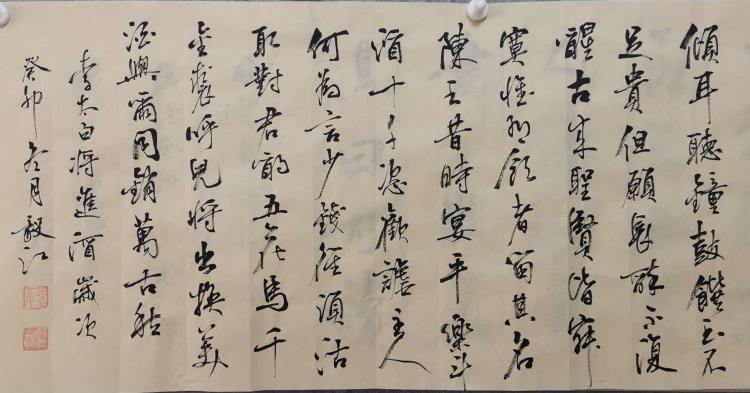 傾耳聽鐘鼓饌玉不
足貴但願長醉不復
醒古來聖賢皆寂
寞惟有飲者留其名
陳王昔時宴平樂斗
酒十千恣歡謔主人
何為言少錢徑須沽
取對君酌五花馬千
金裘呼兒將出換美
酒與爾同銷萬古愁
李太白將進酒歲次
癸卯冬月毅江